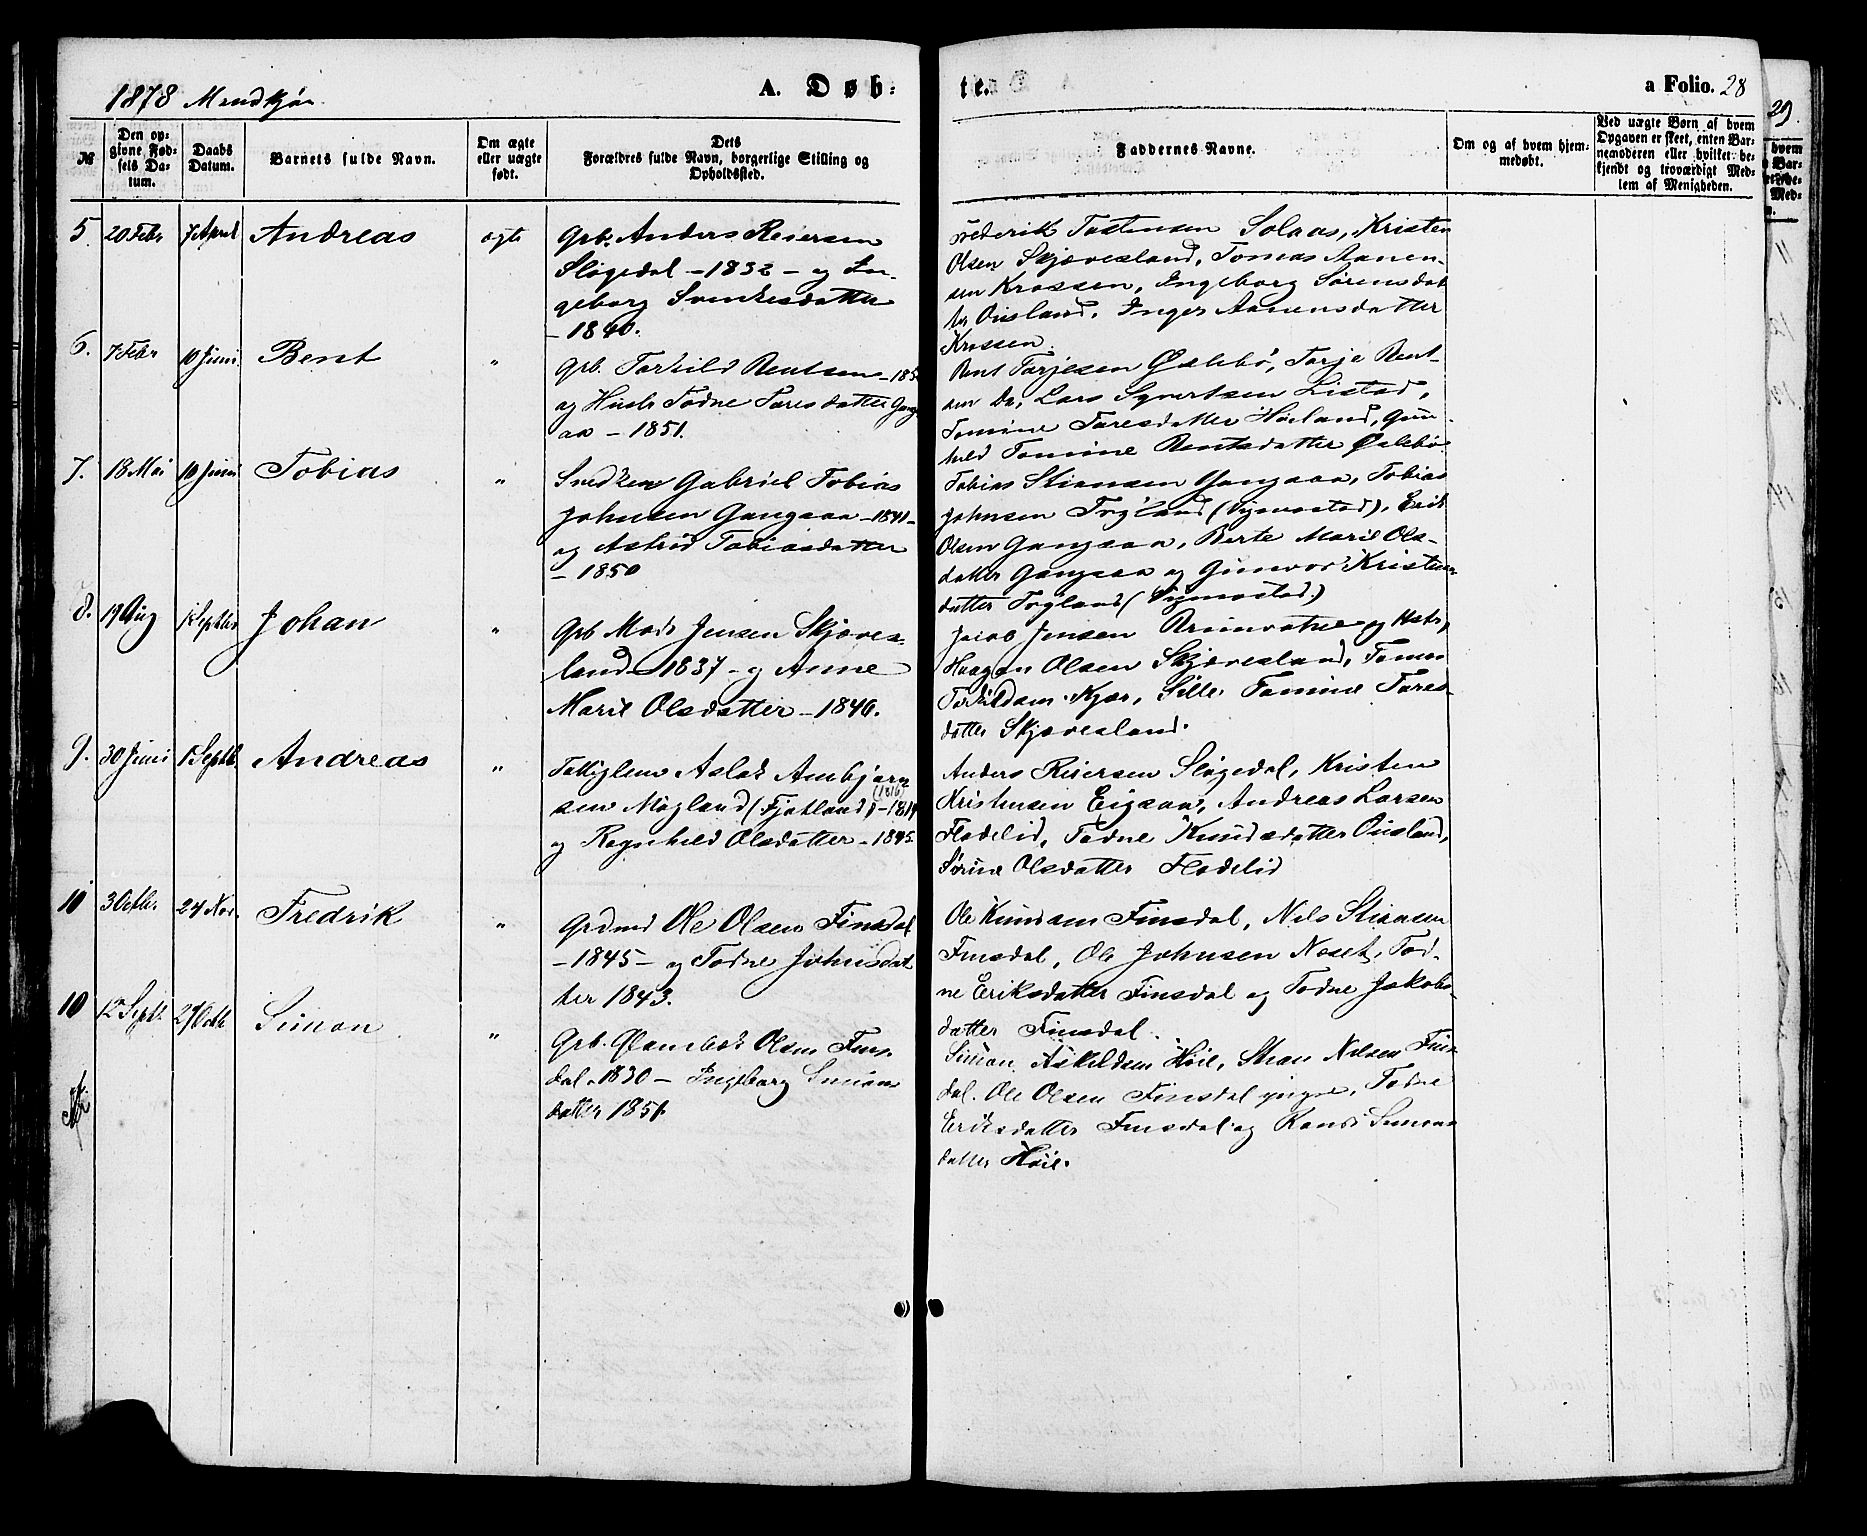 1878 Mandkjøn. A. Døb- te. a Folio. 28
29.
№ Den opgivne Fødsels Datum. Daabs Datum. Barnets fulde Navn. Om ægte eller uægte født. Dets Forældres fulde Navn, borgerlige Stilling og Opholdssted. Faddernes Navne. Om og af hvem hjemmedøbt. Ved uægte Børn af hvem Opgaven er skeet, enten Barnemoderen eller hvilket bekjendt og troværdigt Medlem af Menigheden.
5. 20 Febr 7 April Andreas ægte Grb. Anders Reiersen
Sløgedal – 1832 – og In-
geborg Svenkesdatter
– 1840.
Frederik Tostensen Solaas, Kristen
Olsen Skjævesland, Tomas Aanen-
sen Krossen, Ingeborg Sørensdat
ter Ousland, Inger Aanensdatter
Krossen.
6. 7 Febr 10 Juni Bent " Grb. Torkild Bentsen – 185
og Hustr Todne Taresdatter Gangs
aa – 1851.
Bent Tarjesen Øslebø, Tarje Bent-
sen Do, Lars Syvertsen Listad,
Tomine Taresdatter Høiland, Gun-
hild Tomine Bentsdatter Øslebø.
7. 18 Mai 10 Juni Tobias " Snedker Gabriel Tobias
Johnsen Gangsaa – 1841 –
og Astrid Tobiasdatter
– 1850
Tobias Stiansen Gangsaa, Tobias
Johnsen Trygland (Vigmostad), Erik
Olsen Gangsaa, Berte Marie Ols-
datter Gangsaa og Gunvor Kristens
datter Trygland (Vigmostad.)
8. 19 Aug 1 Septbr Johan " Grb Mads Jensen Skjæves-
land – 1837 – og Anne
Marie Olsdatter – 1840.
Jacob Jensen Brunvatne og Hstr,
Haagen Olsen Skjævesland, Tomas
Torkildsen Kjær, Sille Tomine Tores-
datter Skjævesland.
9. 30 Juni 15 Septb. Andreas " Fattiglem Aslak Anbjørn
sen Møgland (Fjotland) (1816) – 1819
og Ragnhild Olsdatter – 1845.
Anders Reiersen Sløgedal, Kristen
Kristensen Eigsaa, Andreas Larsen
Flodelid, Todne Knudsdatter Ousland,
Sørine Olsdatter Flodelid
10 3 Octbr 24 Nov. Fredrik " Grdmd Ole Olsen Finsdal
– 1845 – og Todne Johnsdat
ter 1843.
Ole Knudsen Finsdal, Nils Stiansen
Finsdal, Ole Johnsen Noset, Tod-
ne Eriksdatter Finsdal og Todne Jakobs-
datter Finsdal.
10 12 Septr 27 Octb Simon " Grb. Olsen Fins-
dal – 1830 – Ingeborg Simons
datter 1851.
Simon Askildsen Høie, Stian Nilsen Fins
dal. Ole Olsen Finsdal yngre, Todne
Eriksdatter Finsdal og Randi Simons
datter Høie.